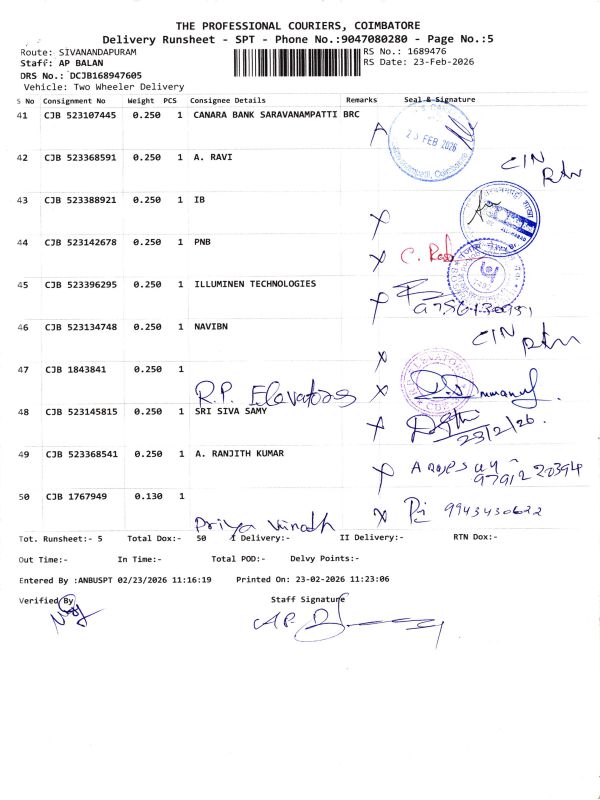 THE PROFESSIONAL COURIERS, COIMBATORE
Delivery Runsheet - SPT - Phone No.:9047080280 - Page No.:5
Route: SIVANANDAPURAM RS No.: 1689476
Staff: AP BALAN RS Date: 23-Feb-2026
DRS No.: DCJB168947605
Vehicle: Two Wheeler Delivery
S No Consignment No Weight PCS Consignee Details Remarks Seal & Signature
41 CJB 523107445 0.250 1 CANARA BANK SARAVANAMPATTI BRC
23 FEB 2026
42 CJB 523368591 0.250 1 A. RAVI
CIN
Rtn
43 CJB 523388921 0.250 1 IB
44 CJB 523142678 0.250 1 PNB
45 CJB 523396295 0.250 1 ILLUMINEN TECHNOLOGIES
46 CJB 523134748 0.250 1 NAVIBN
CIN Rtn
47 CJB 1843841 0.250 1
R.P. Elevators
48 CJB 523145815 0.250 1 SRI SIVA SAMY
23/2/26.
49 CJB 523368541 0.250 1 A. RANJITH KUMAR
97912 20394
50 CJB 1767949 0.130 1
Priya Vinoth 9943430622
Tot. Runsheet:- 5 Total Dox:- 50 I Delivery:- II Delivery:- RTN Dox:-
Out Time:- In Time:- Total POD:- Delvy Points:-
Entered By :ANBUSPT 02/23/2026 11:16:19 Printed On: 23-02-2026 11:23:06
Verified By Staff Signature